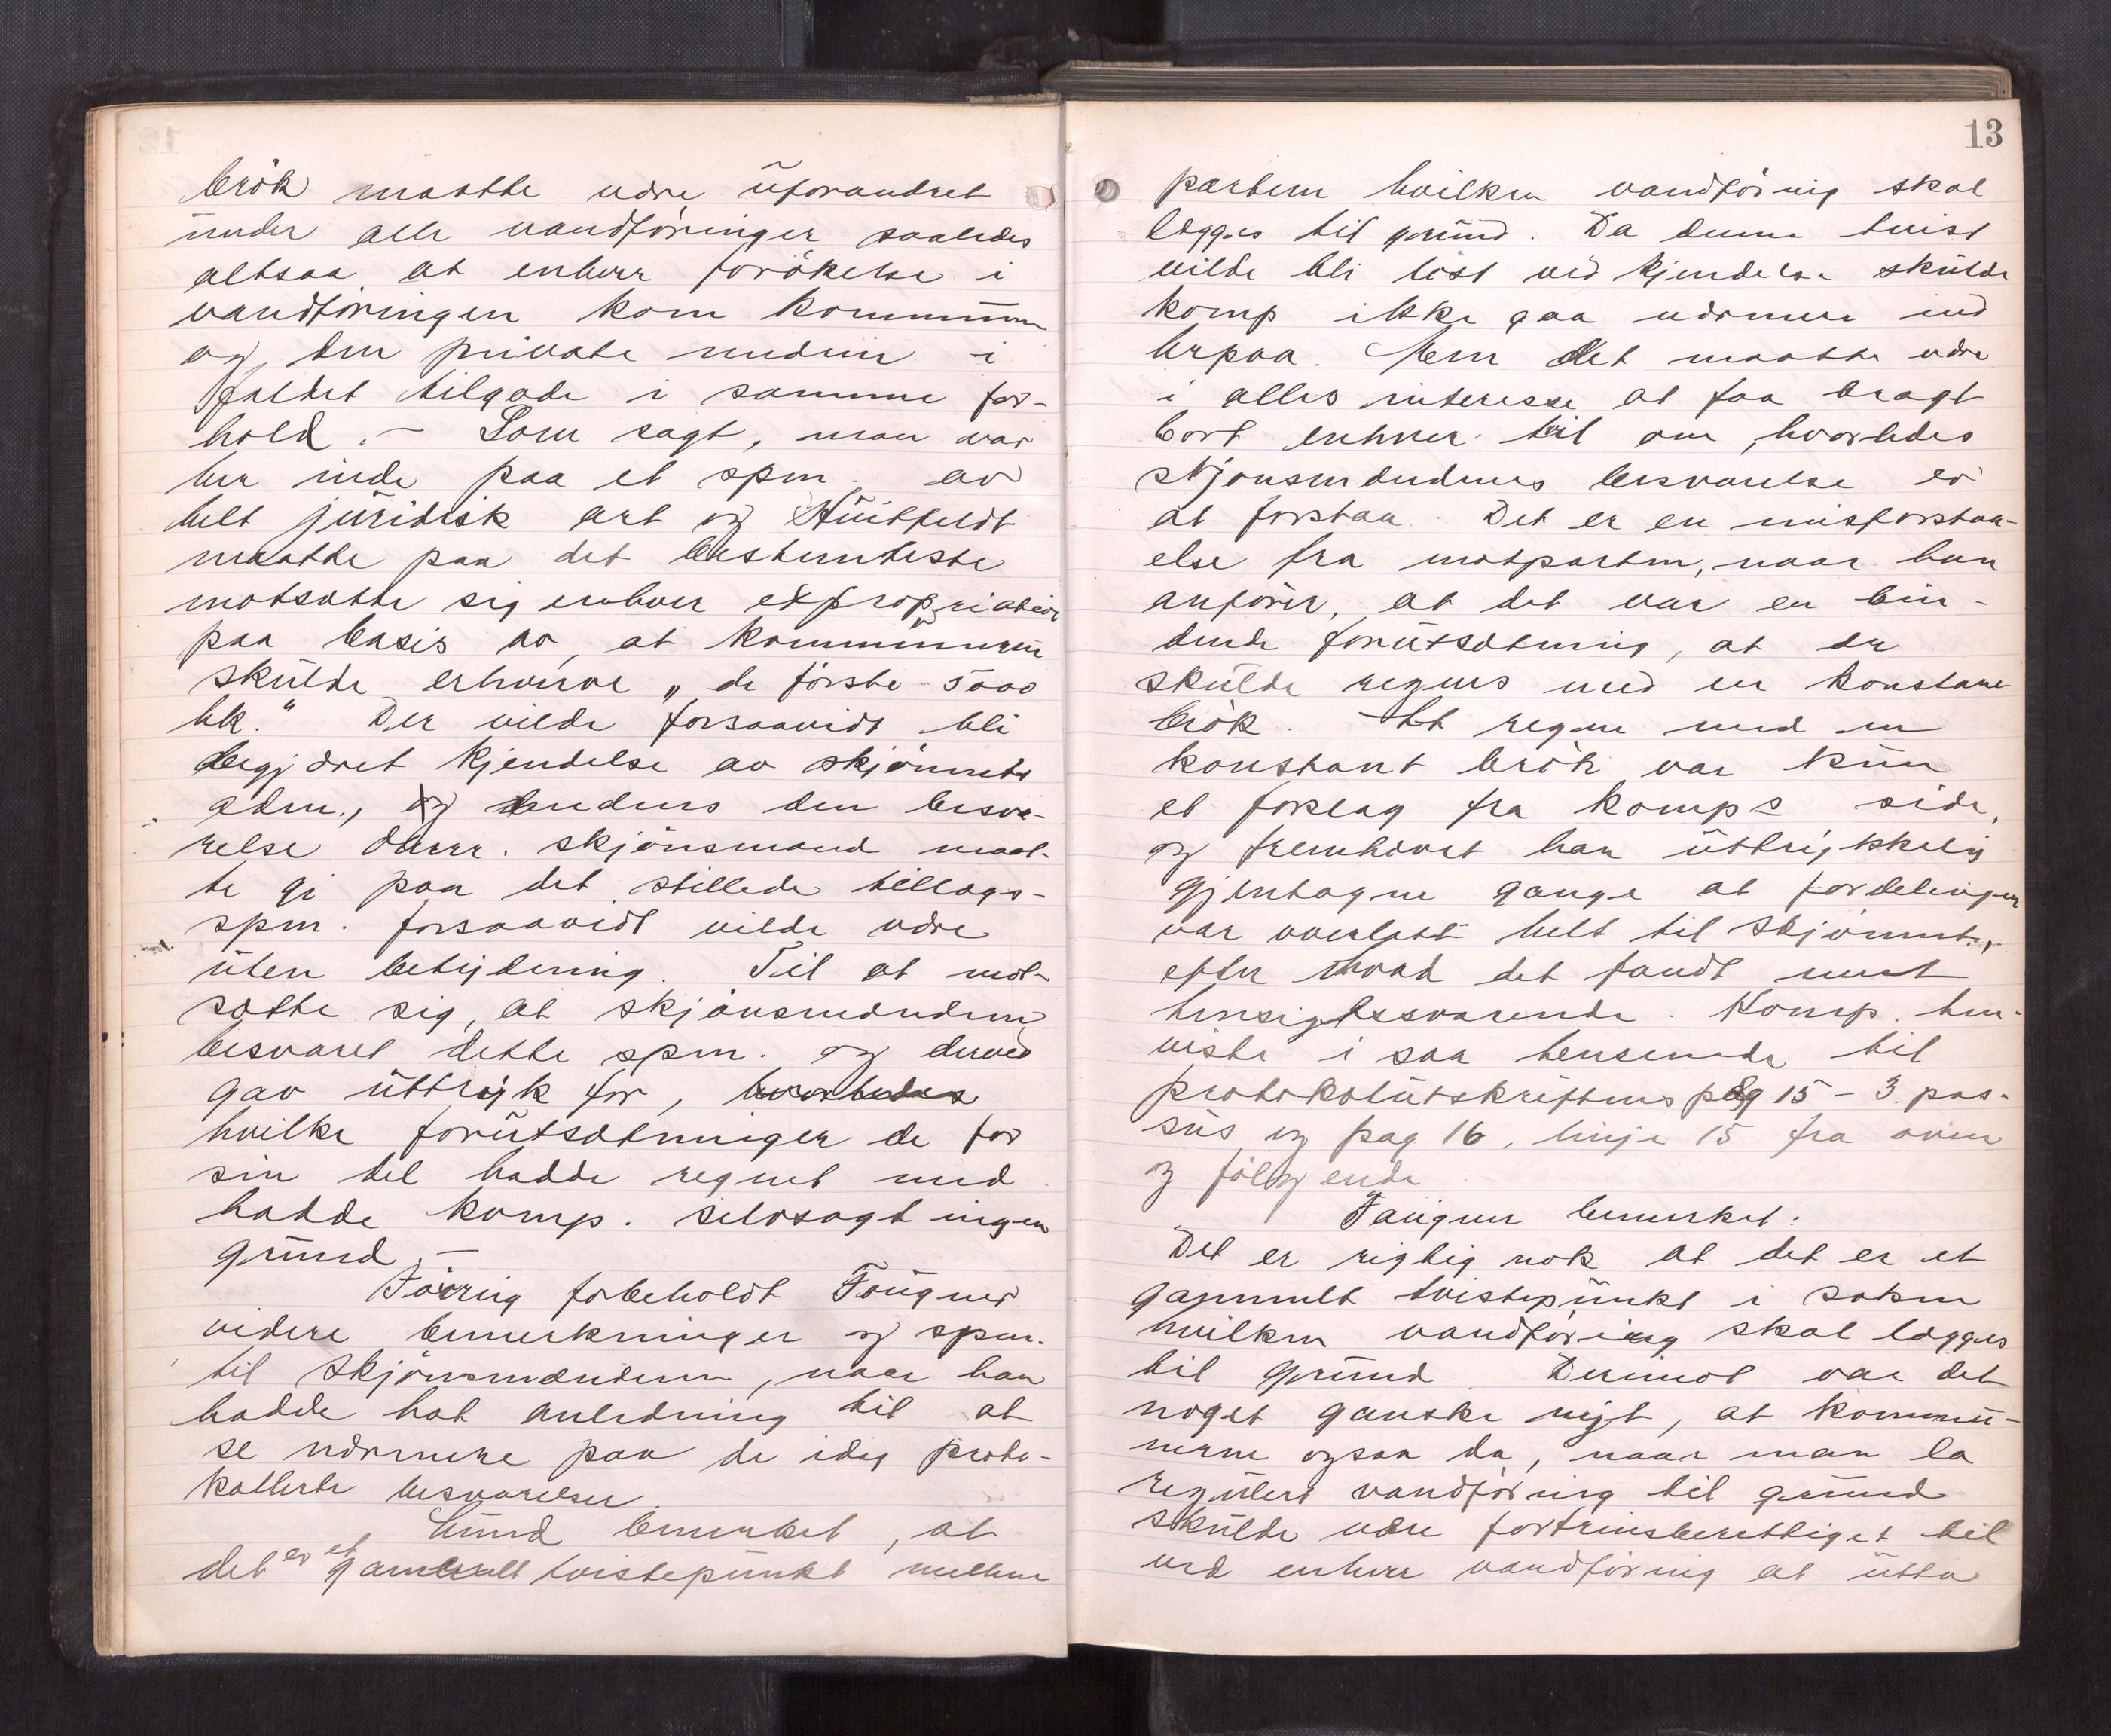 brök maatte være uforandret
under alle vandföringer saaledes
altsaa at enhver forökelse i
vandföringen kom kommunen
og den private medeier i
faldet tilgode i samme for-
hold. – Som sagt, man var
her inde paa et spm. av
helt juridisk art og Huitfeldt
maatte paa det bestemteste
motsætte sig enhver expropriation
paa basis av, at kommunerne
skulde erhverve „de förste 5000
hk." Der vilde forsaavidt bli
begjæret kjendelse av skjönnets
adm., og den besva-
relse skjönsmænd maat-
te gi paa det stillede tillægs-
spm. forsaavidt vilde være
uten betydning. Til at mot-
sætte sig, at skjönsmændene
besvaret dette spm. og derved
gav uttryk for, hvorledes
hvilke forutsætninger de for
sin del hadde regnet med
hadde komp. selvsagt ingen
grund. –
Iövrig forbeholdt Fougner
videre bemerkninger og spm.
til skjönsmændene, naar han
hadde hat anledning til at
se nærmere paa de idag proto-
kollerte besvarelser.
Lund bemerket, at
det er et gammelt tvistepunkt mellem
13
partene hvilken vandföring skal
lægges til grund. Da denne tvist
vilde bli löst ved kjendelse skulde
komp ikke gaa nærmere ind
herpaa. Men det maatte være
i alles interesse at faa bragt
bort enhver tvil om, hvorledes
skjönsmændenes besvarelse er
at forstaa. Det er en misforstaa-
else fra motparten, naar han
anförer, at det var en bin-
dende forutsætning, at der
skulde regnes med en konstant
brök. At regne med en
konstant brök var kun
et forslag fra komps side,
og fremhævet han uttrykkelig
gjentagne gange at fordelingen
var overlatt helt til skjönnet,
efter hvad det fandt mest
hensigtssvarende. Komp. hen-
viste i saa henseende til
protokolutskriftens pag 15 – 3. pas-
sus og pag 16, linje 15 fra oven
og fölgende.
Fougner bemerket:
Det er rigtig nok at det er et
gammelt tvistepunkt i saken
hvilken vandföring skal lægges
til grund. Derimot var det
noget ganske nyt, at kommu-
nerne ogsaa da, naar man la
regulert vandföring til grund
skulde være fortrinsberettiget til
ved enhver vandföring at utta